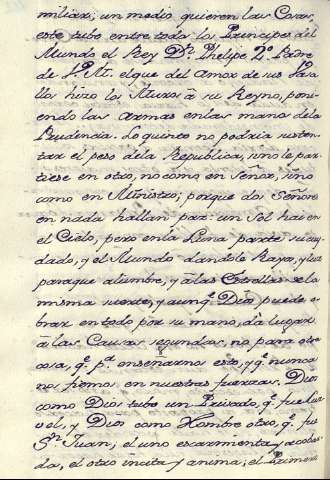 miliar; un medio quieren las Cosas,
este tubo entre todos los Principes del
Mundo el Rey Dn. Phelipe 2º Padre
de S. M. el que del Amor de sus Vasa
llos hizo los Muros â su Reyno, poni-
endo las Armas en las manos de la
Prudencia. Lo quinto no podria susten-
tar el peso de la Republica, sino le par-
tiese en otro, no como en Señor, sino
como en Ministro; porque dos Señores
en nada hallan paz: un Sol hai en
el Cielo, pero en la Luna parte su cui-
dado, y el Mundo dandole Raya, y luz
para que alumbre, y â las Estrellas de la
misma suerte, y aunqe. Dios puede o-
brar en todo por su mano, da lugar
â las Causas segundas, no para otra
cosa, qe. pa. enseñarnos esto, y qe. nunca
nos fiemos en nuestras fuerzas. Dios
como Dios tubo un Privado, qe. fue Luz-
vel, y Dios como Hombre otro, qe. fue
Sn. Juan, el uno escarmienta, y acobar-
da, el otro incita, y anima; el Primero